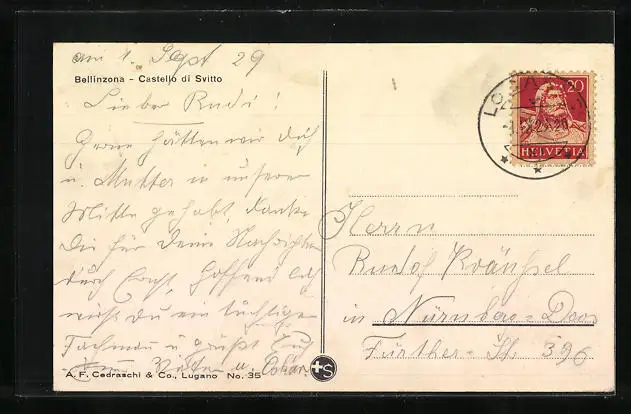 am 1. Sept 29
Bellinzona - Castello di Svitto
Lieber Rudi!
Gerne hätten wir dich
u. Mutter in unserer
Mitte gehabt, danke
Dir für Deine Nachrichten
durch Ernst, hoffend
wirst du ein tüchtiger
Fachmann u. grüßt Euch
Vater u.
A. F. Cedraschi & Co., Lugano No. 35
+S
20
HELVETIA
Herrn
Rudolf Kränzel
in Nürnberg = Doos
Fürther = St. 396